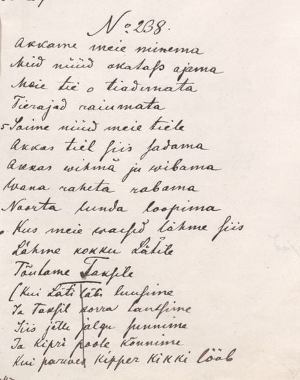 No 238.
Akkame meie minema
Meid nüüd oxatass ajama
Meie tie o tiadmata
Tierajad raiumata
5 Saime nüüd meie tiele
Akkas tiel siis sadama
Akkas wihmä ju wibama
Wana raheta rabama
Noorta lunda loopima
Kus meie waesed lähme siis
Lähme kokku Lätile
Tõulame Taksile
(Kui Läti läbi luusime
Ja Taksil korra tantsime
Siis jälle jalgu punnime
Ja Kipri poole kõnnime
Kui paruas kipper kikki lööb